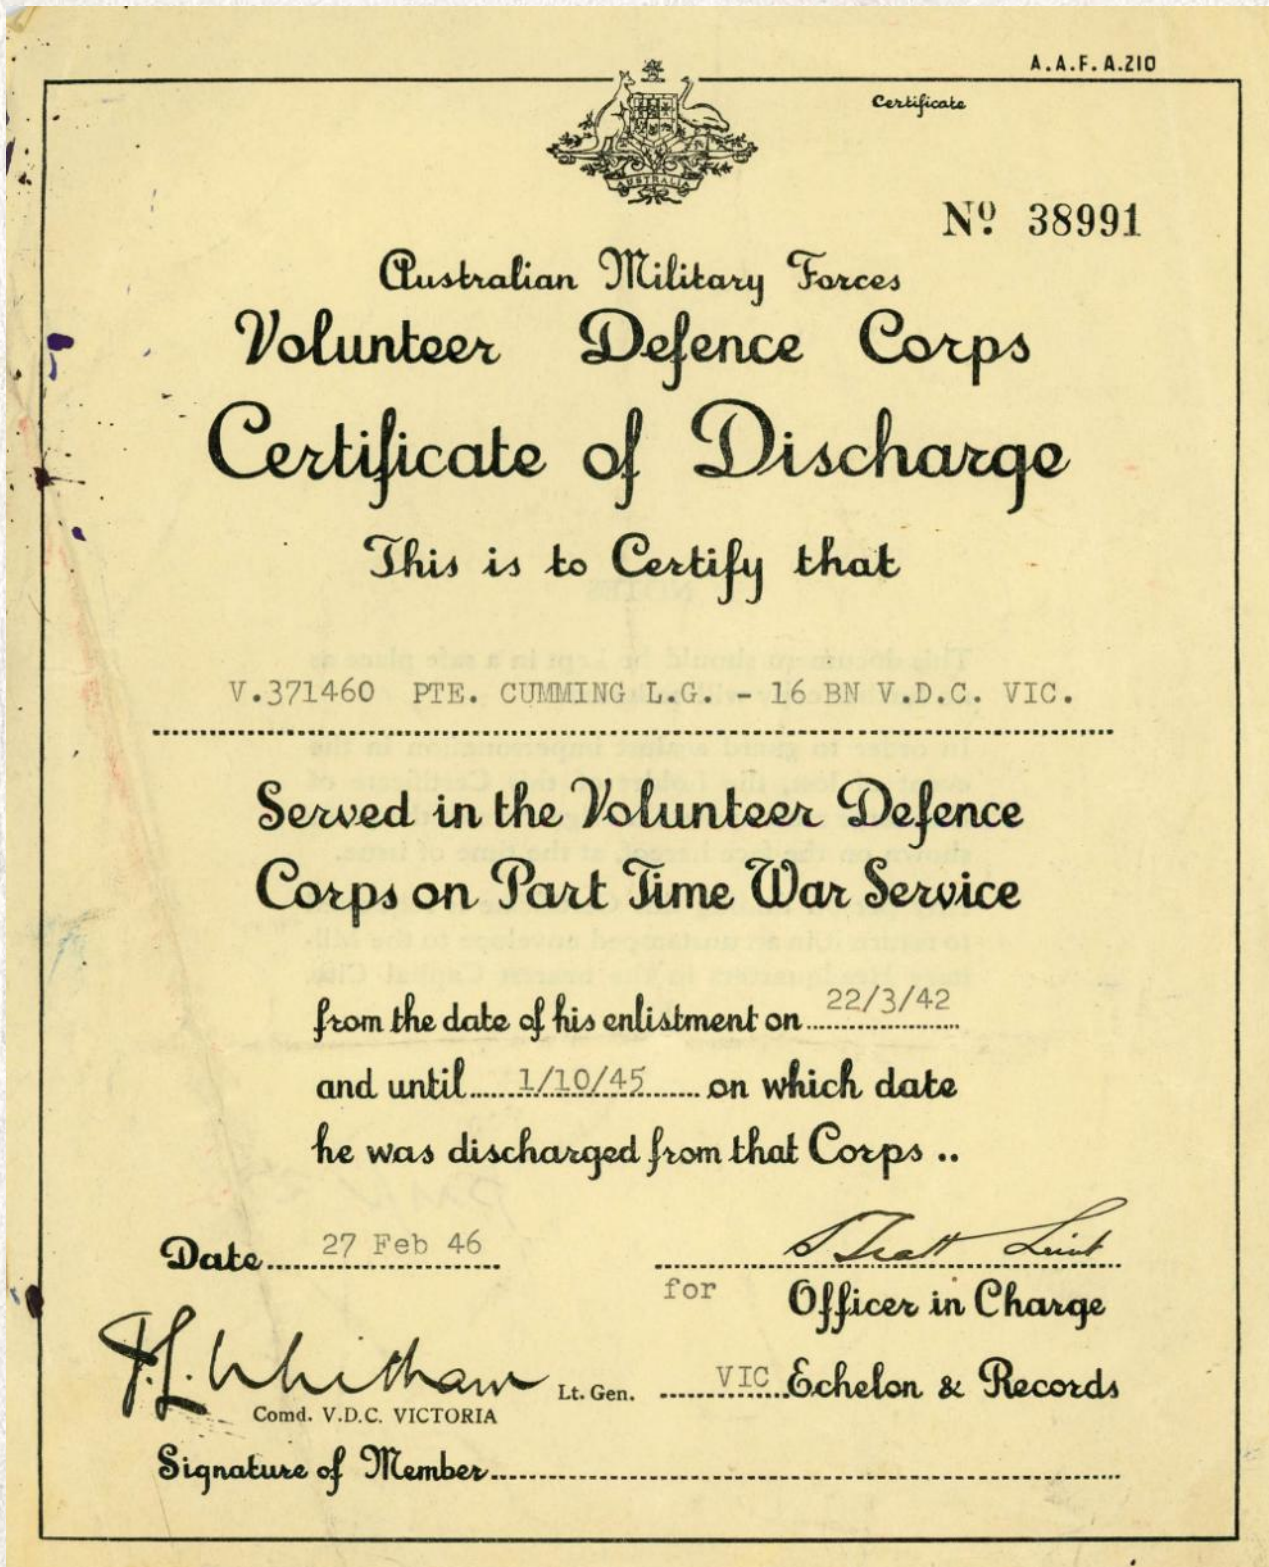 A.A.F. A.210
Certificate
AUSTRALIA
Nº 38991
Australian Military Forces
Volunteer Defence Corps
Certificate of Discharge
This is to Certify that
V.371460 PTE. CUMMING L.G. - 16 BN V.D.C. VIC.
Served in the Volunteer Defence
Corps on Part Time War Service
from the date of his enlistment on 22/3/42
and until 1/10/45 on which date
he was discharged from that Corps ..
Date 27 Feb 46
Lieut
for Officer in Charge
Whitham Lt. Gen. VIC Echelon & Records
Comd. V.D.C. VICTORIA
Signature of Member